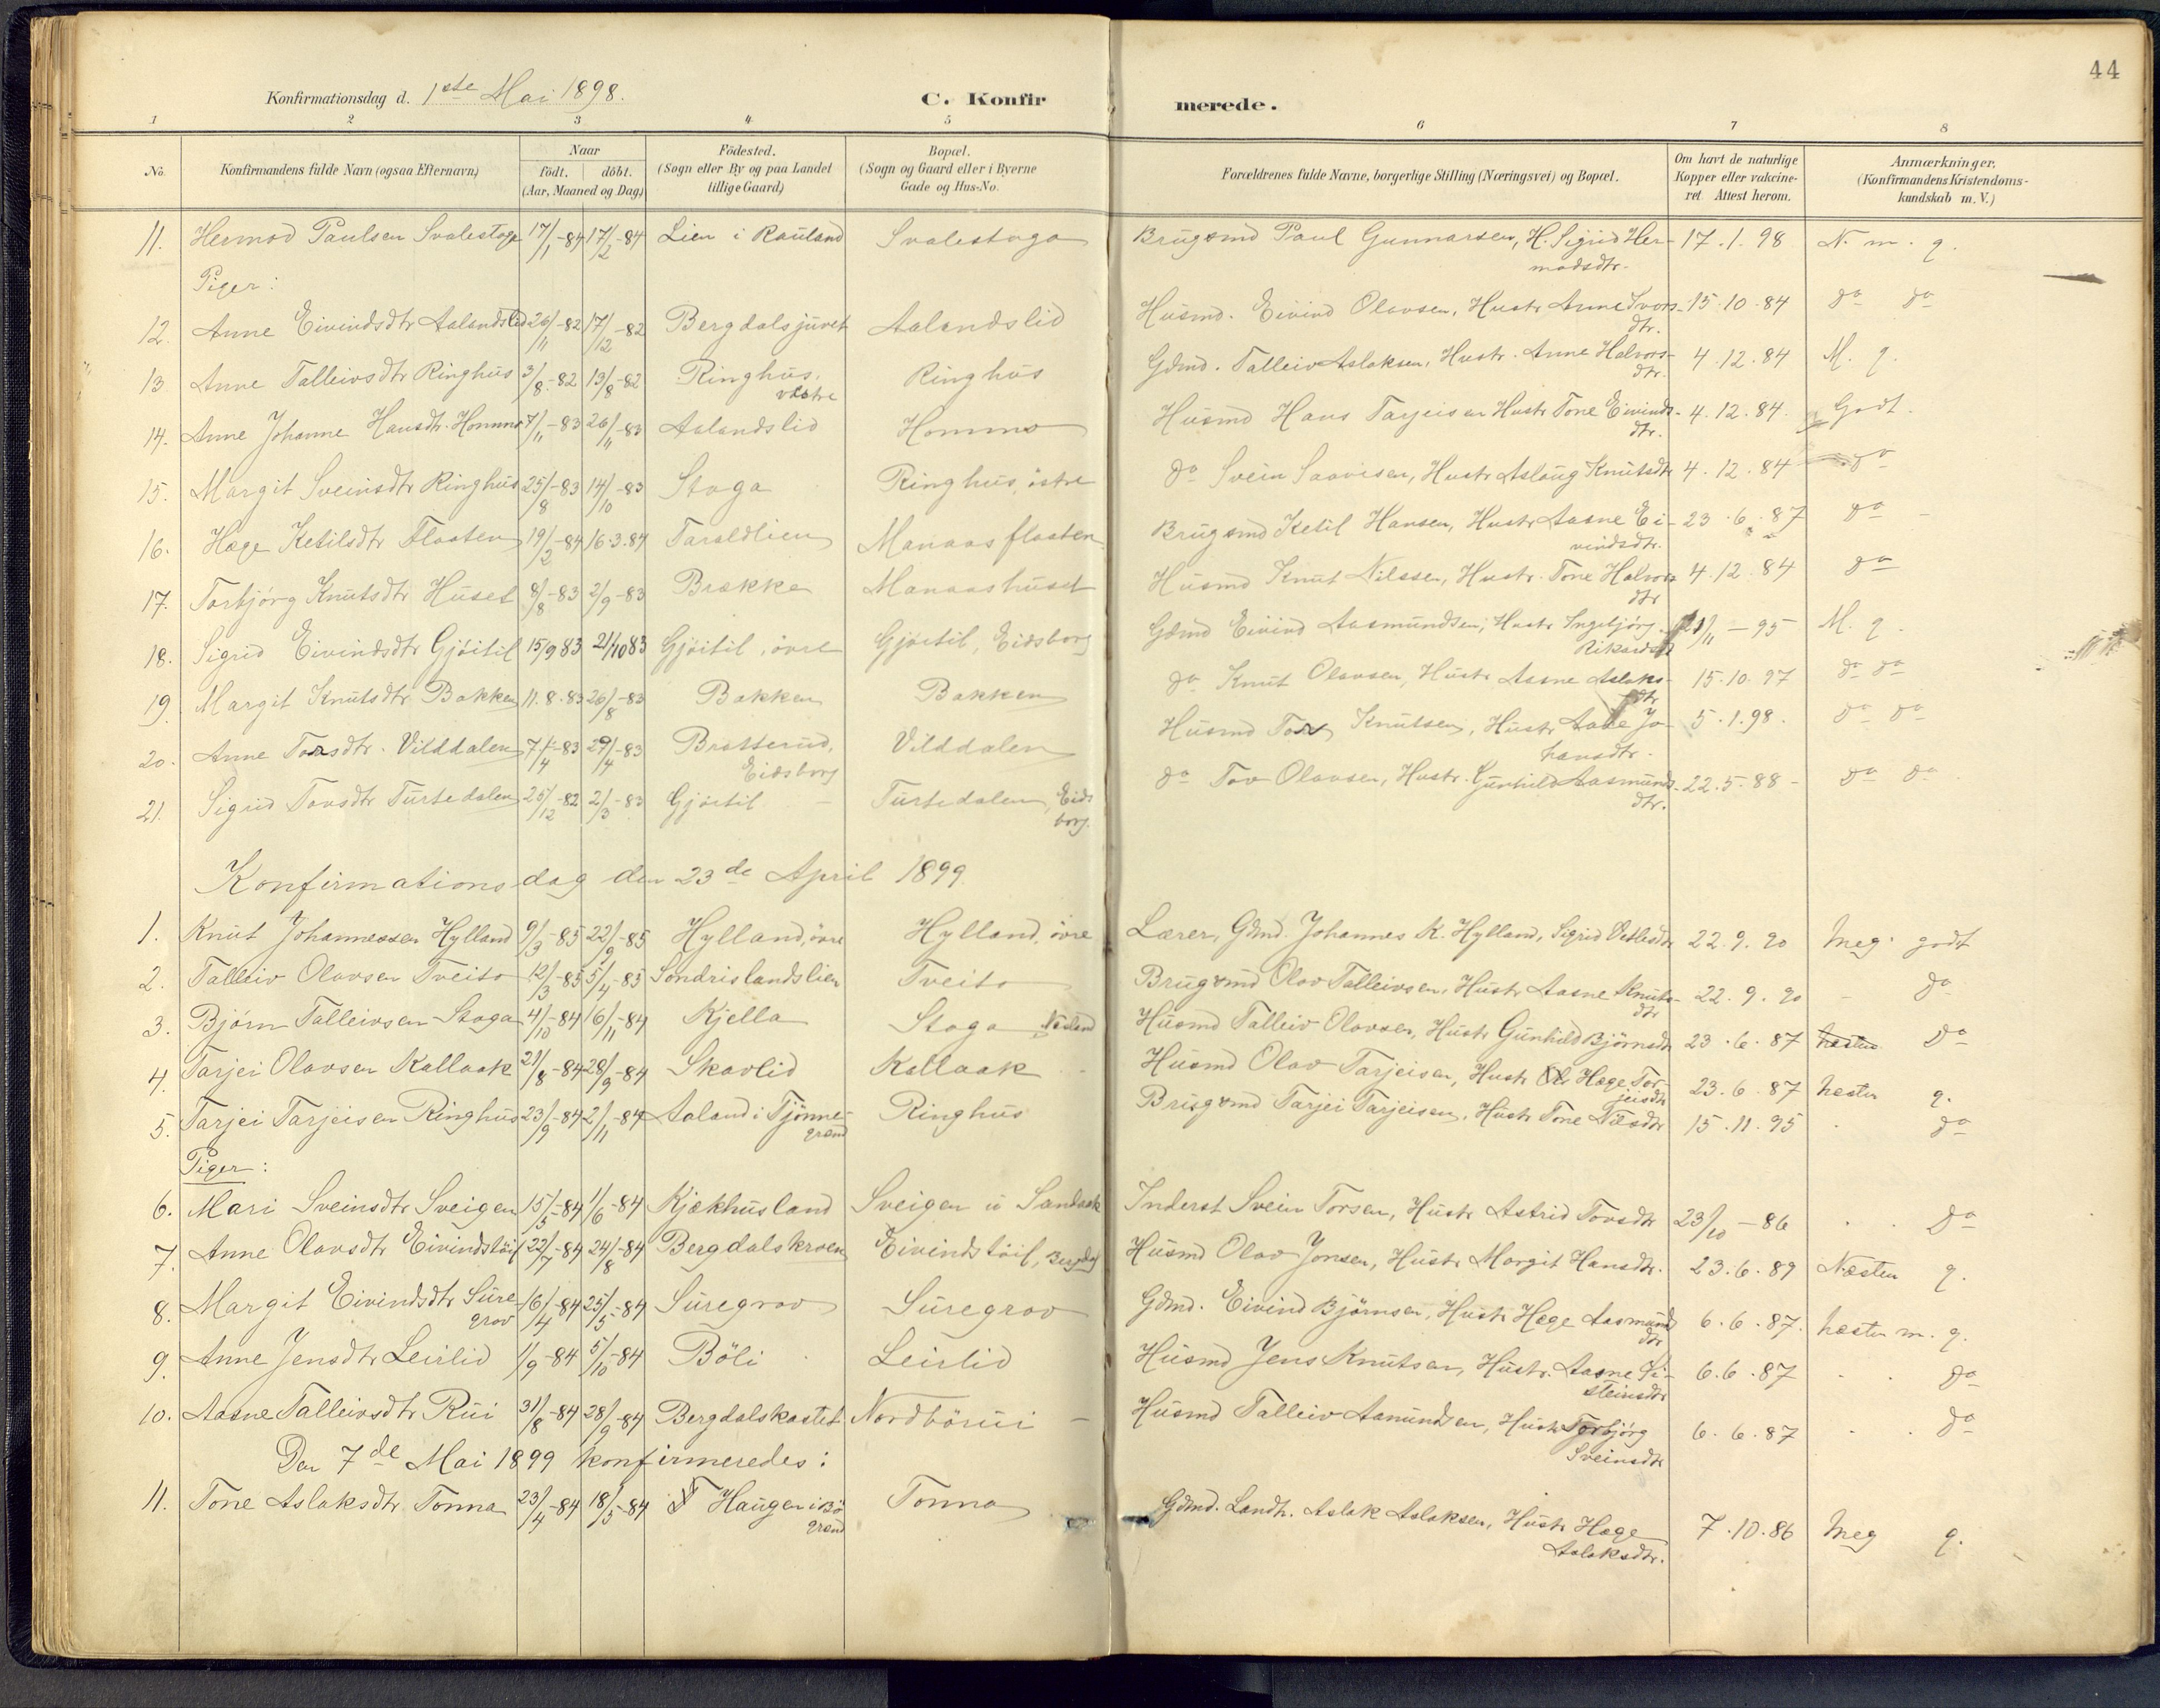 44
Konfirmationsdag d. 1ste Mai 1898. C. Konfirmerede.
1 2 3 4 5 6 7 8
No. Konfirmandens fulde Navn (ogsaa Efternavn) Naar födt. döbt. (Aar, Maaned og Dag) Födested. (Sogn eller By og paa Landet tillige Gaard) Bopæl. (Sogn og Gaard eller i Byerne Gade og Hus-No. Forældrenes fulde Navne, borgerlige Stilling (Næringsvei) og Bopæl. Om havt de naturlige Kopper eller vakcineret Attest herom. Anmærkninger. (Konfirmandens Kristendomskundskab m. V.)
11. Hermod Paulsen Svalestoga 17/1-84 17/2-84 Lien i Rauland Svalestoga Brugsmd Paul Gunnarsen, H. Sigrid Hermodsdtr. 17.1.98 N. m. g.
Piger:
12. Anne Eivindsdtr Aalandslid 26/11-82 17/12-82 Bergdalsjuvet Aalandslid Husmd. Eivind Olavsen, Hustr Anne Ivorsdtr. 15.10.84 do do
13. Anne Talleivsdtr Ringhus 3/8-82 13/8-82 Ringhus, vestre Ringhus Gdmd. Talleiv Aslaksen, Hustr. Anne Halvorsdtr. 4.12.84 M. g.
14. Anne Johanne Hansdtr. Hommo 7/11-83 26/11-83 Aalandslid Hommo Husmd Hans Tarjeisen Hustr Tone Eivindsdtr. 4.12.84. Godt.
15. Margit Sveinsdtr Ringhus 25/8-83 14/10-83 Stoga Ringhus, östre do Svein Saavisen, Hustr Aslaug Knutsdtr 4.12.84 do
16. Hæge Ketilsdtr Flaaten 19/2-84 16.3.84 Taraldlien Manaasflaaten Brugsmd Ketil Hansen, Hustr Aasne Eivindsdtr. 23.6.87 do
17. Torbjörg Knutsdtr Huset 8/8-83 2/9-83 Brække Manaashuset Husmd Knut Nilssen, Hustr. Tone Halvorsdtr 4.12.84 do
18. Sigrid Eivindsdtr Gjöitil 15/9 83 21/10 83 Gjöitil, övre Gjöitil, Eidsborg Gdmd Eivind Aasmundsen, Hustr Ingebjörg Rikardsd 21/11-95 M. g.
19. Margit Knutsdtr Bakken 11.8.83 26/8-83 Bakken Bakken do Knut Olavsen, Hustr Aasne Aslaksdtr 15.10.97 do do
20. Anne Torsdtr. Vilddalen 7/4-83 29/4-83 Bratterud, Eidsborg Vilddalen Husmd Tor Knutsen, Hustr Aase Johansdtr. 5.1.98. do do
21. Sigrid Tovsdtr Turtedalen 25/12-82 2/3-83 Gjöitil Turtedalen, Eidsborg. do Tov Olavsen, Hustr. Gunhild Aasmundsdtr. 22.5.88 do do
Konfirmationsdag den 23de April 1899.
1. Knut Johannessen Hylland 9/3-85 22/9-85 Hylland, övre Hylland, övre Lærer, Gdmd. Johannes K. Hylland, Sigrid Vetlesdtr 22.9.90 Meg. godt
2. Talleiv Olavsen Tveito 12/3-85 5/4-85 Sondrislandslien Tveito Brugsmd Olav Talleivsen, Hustr Aasne Knutsdtr 22.9.90 do
3. Björn Talleivsen Stoga 4/10-84 16/11-84 Kjella Stoga Næsland Husmd Talleiv Olavsen, Hustr Gunhild Björnsdtr 23.6.87 næsten do
4. Tarjei Olavsen Kallaak 21/8-84 28/9-84 Skavlid Kallaak Husmd Olav Tarjeisen, Hustr Hæge Torjeisdtr 23.6.87 næsten g.
5. Tarjei Tarjeisen Ringhus 23/9-84 2/11-84 Aaland i Tjönnegrend Ringhus Brugsmd Tarjei Tarjeisen, Hustr Tone Nilsdtr 15.11.95 do
Piger:
6. Mari Sveinsdtr Sveigen 15/5-84 1/6-84 Kjækhusland Sveigen u Sandaak Inderst Svein Torsen, Hustr Astrid Tovsdtr 23/10-86 do
7. Anne Olavsdtr Eivindstöil 22/7-84 24/8-84 Bergdalskroen Eivindstöil, Bergdal Husmd Olav Jonsen, Hustr Margit Hansdtr. 23.6.89 Næsten g.
8. Margit Eivindsdtr Suregrov 16/4-84 25/5-84 Suregrov Suregrov Gdmd. Eivind Björnsen, Hustr Hæge Aasmundsdtr 6.6.87. næsten m. g.
9. Anne Jensdtr Leirlid 1/9-84 5/10-84 Böli Leirlid Husmd Jens Knutsen, Hustr. Aasne Eisteinsdtr 6.6.87 do
10. Aasne Talleivsdtr Rui 31/8-84 28/9-84 Bergdalskastet Nordbörui Husmd Talleiv Aamundsen, Hustr Torbjörg Sveinsdtr 6.6.87 do
Den 7de Mai 1899 konfirmeredes:
11. Tone Aslaksdtr. Tonna 23/4-84 18/5-84 Haugen i Bögrend Tonna Gdmd. Landh. Aslak Aslaksen, Hustr Hæge Aslaksdtr. 7.10.86 Meg g.